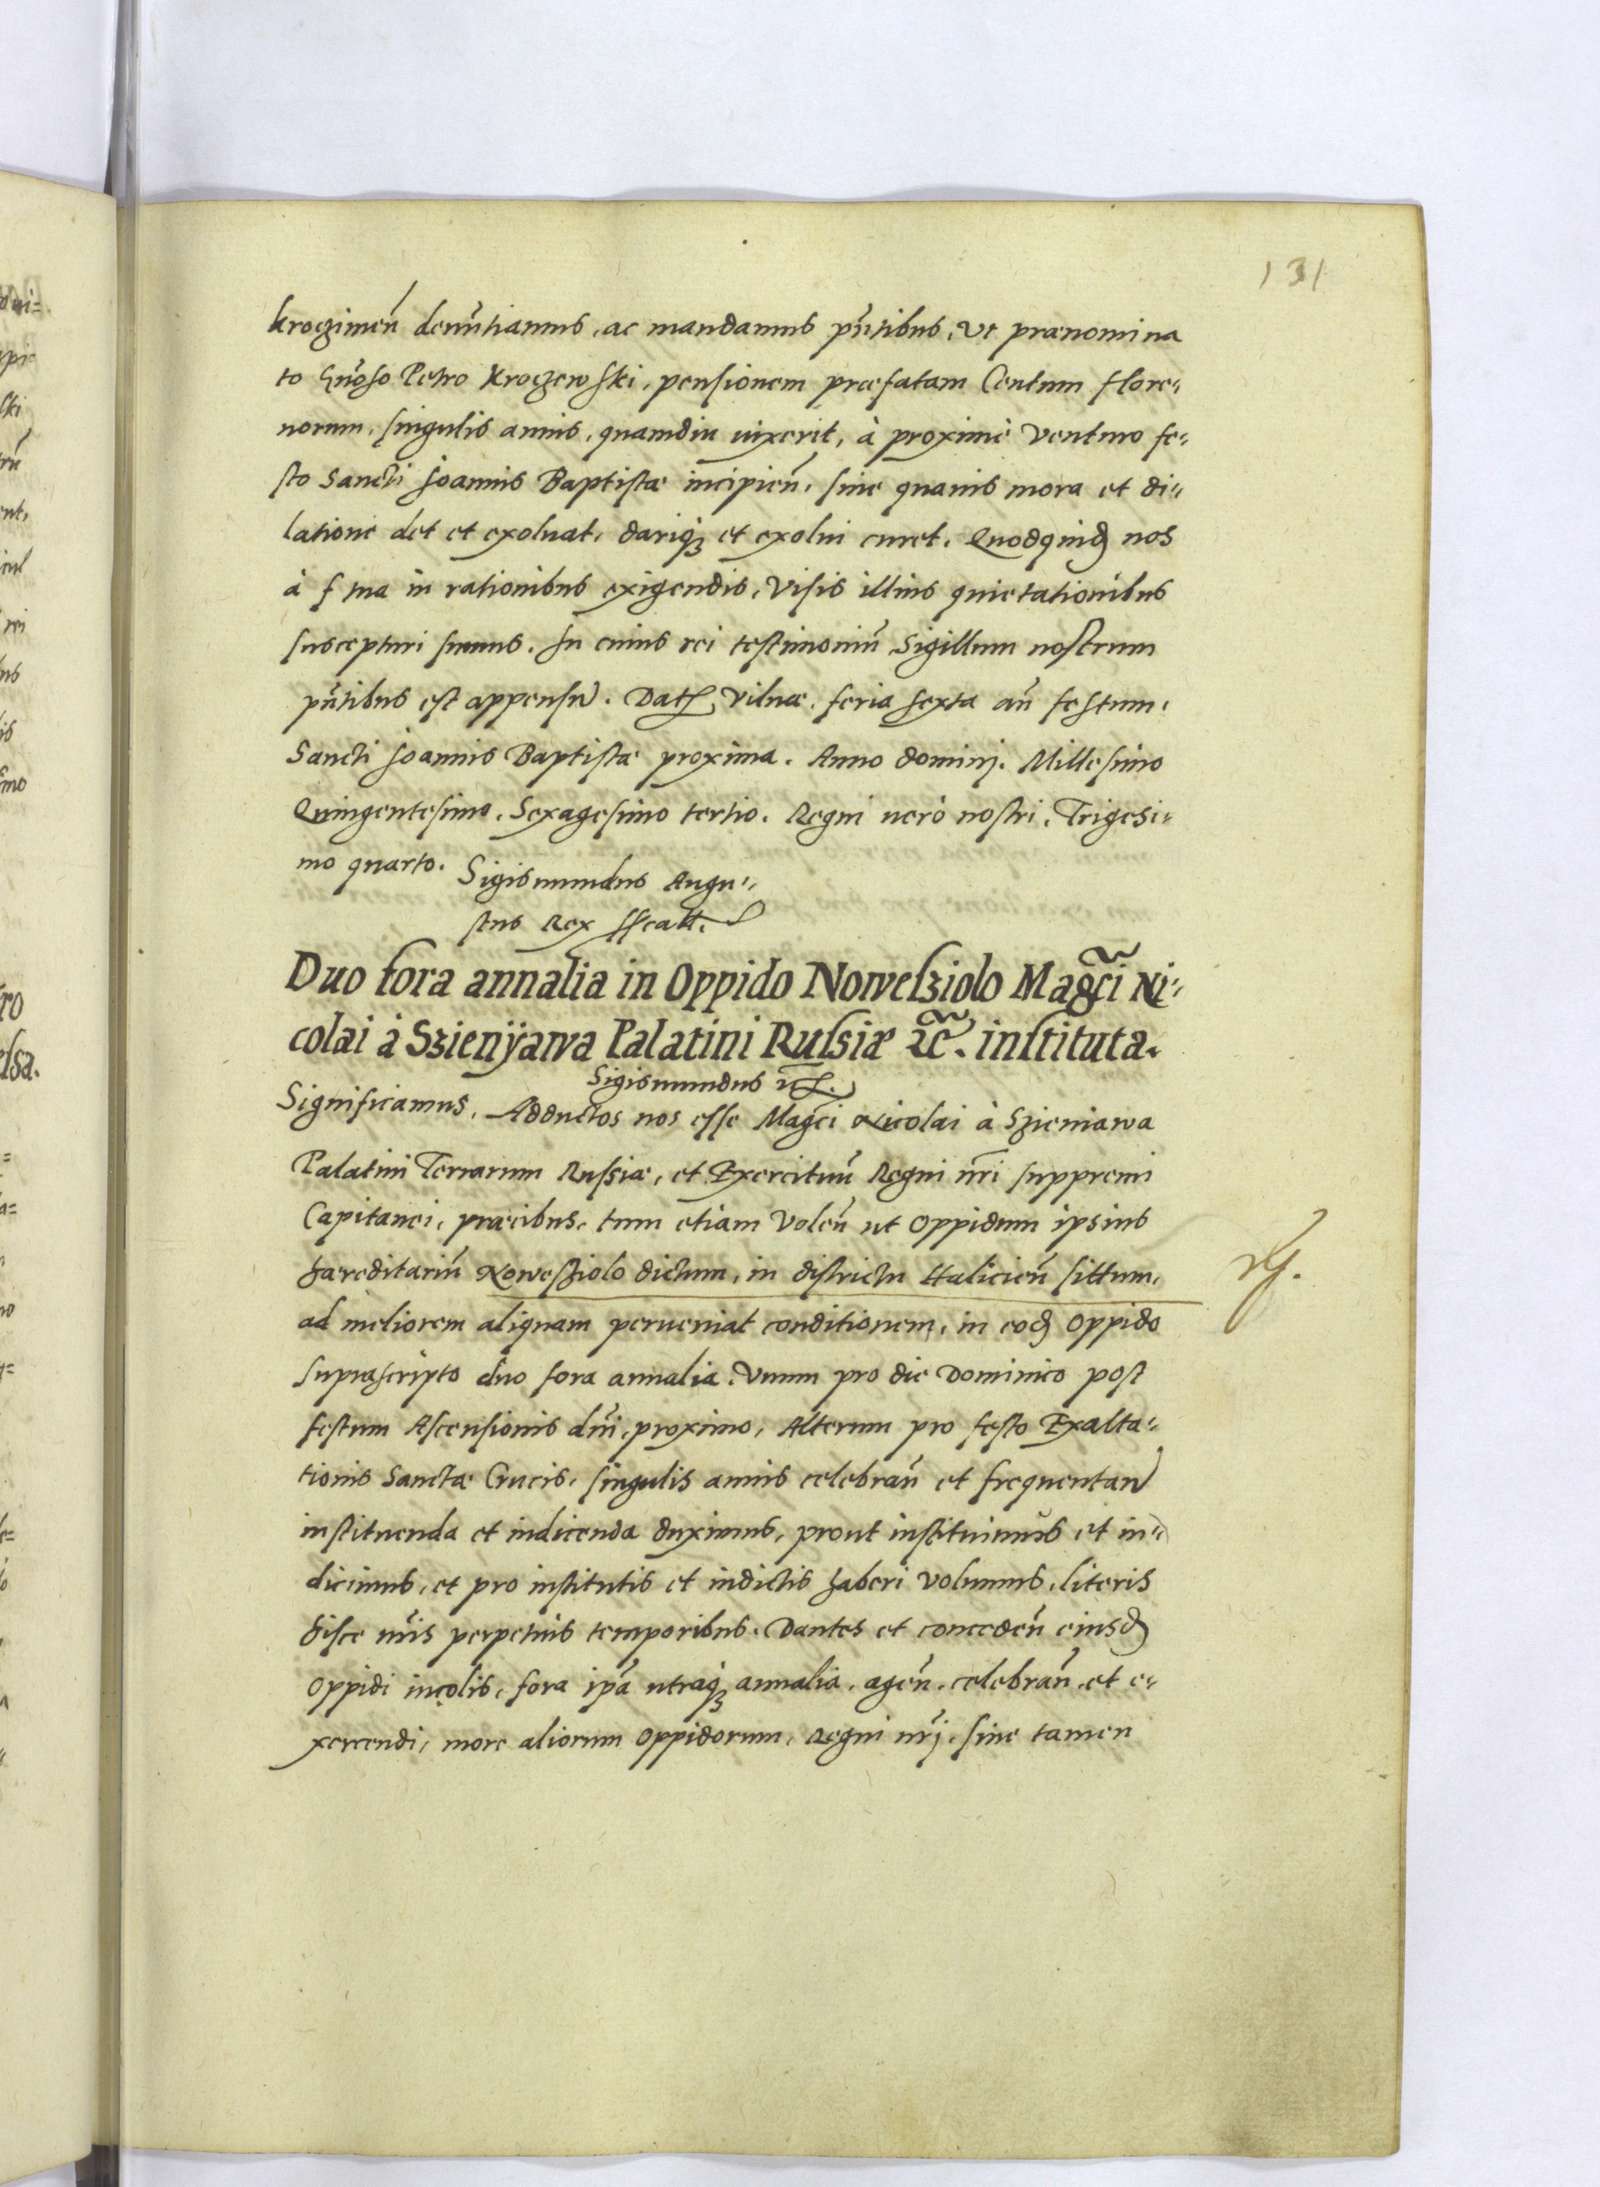 131
krozimeñ denũtiamus, ac mandamus pñtibus, Ut prænomina
to Gñoso Petro Krozewski, pensionem præfatam Centum flore=
norum, singulis annis, quamdiu vixerit, à proximè venturo fe=
sto Sancti Joannis Baptistæ incipieñ, sine quavis mora et di=
latione det et exolvat, dariq3 et exolvi curet. Quod quid nos
à f tua in rationibus exigendis, visis illius quietationibus
suscepturi sumus. In cuius rei testimoniũ Sigillum nostrum
pñtibus est appensũ. Dat Vilnæ, feria sexta añ festum,
Sancti Joannis Baptistæ proxima. Anno dominj. Millesimo
Quingentesimo, Sexagesimo tertio. Regni verò nostri, Trigesi=
mo quarto. Sigismundus Augu=
stus Rex
Duo fora annalia in Oppido Nowesziolo Mag̃ci Ni=
colai à Szienÿawa Palatini Russiæ ꝛc̃. instituta.
Sigismundus ꝛc̃.
Significamus, Adductos nos esse Mag̃ci Nicolai à Szieniawa
Palatini Terrarum Russiæ, et Exercituũ Regni nr̃i suppremi
Capitanei, præcibus, tum etiam Voleñ ut Oppidum ipsius
hæreditariũ Nowesziolo dictum, in districtu Halicieñ sittum,
ad meliorem aliquam perveniat conditionem, in eod Oppido
suprascripto duo fora annalia, Unum pro die Dominico post
festum Ascensionis dñi, proximo, Alterum pro festo Exalta=
tionis Sanctæ Crucis, singulis annis celebrañ et frequentañ
instituenda et indicenda duximus, prout instituimus et in=
dicimus, et pro institutis et indictis haberi volumus, literis
hisce nr̃is perpetuis temporibus. Dantes et concedeñ eiusd
Oppidi incolis, fora ip̃a utraq3 annalia, ageñ, celebrañ, et e=
xercendi, more aliorum Oppidorum, Regni nr̃j, sine tamen